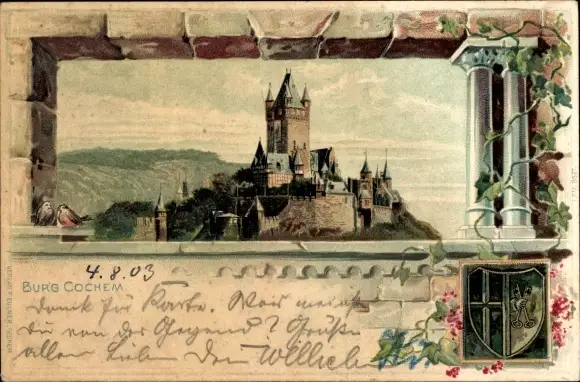 4.8.03
BURG COCHEM
Dank für Karte. Was meinst
du von der Gegend? Grüße
allen Lieben Dein Willi